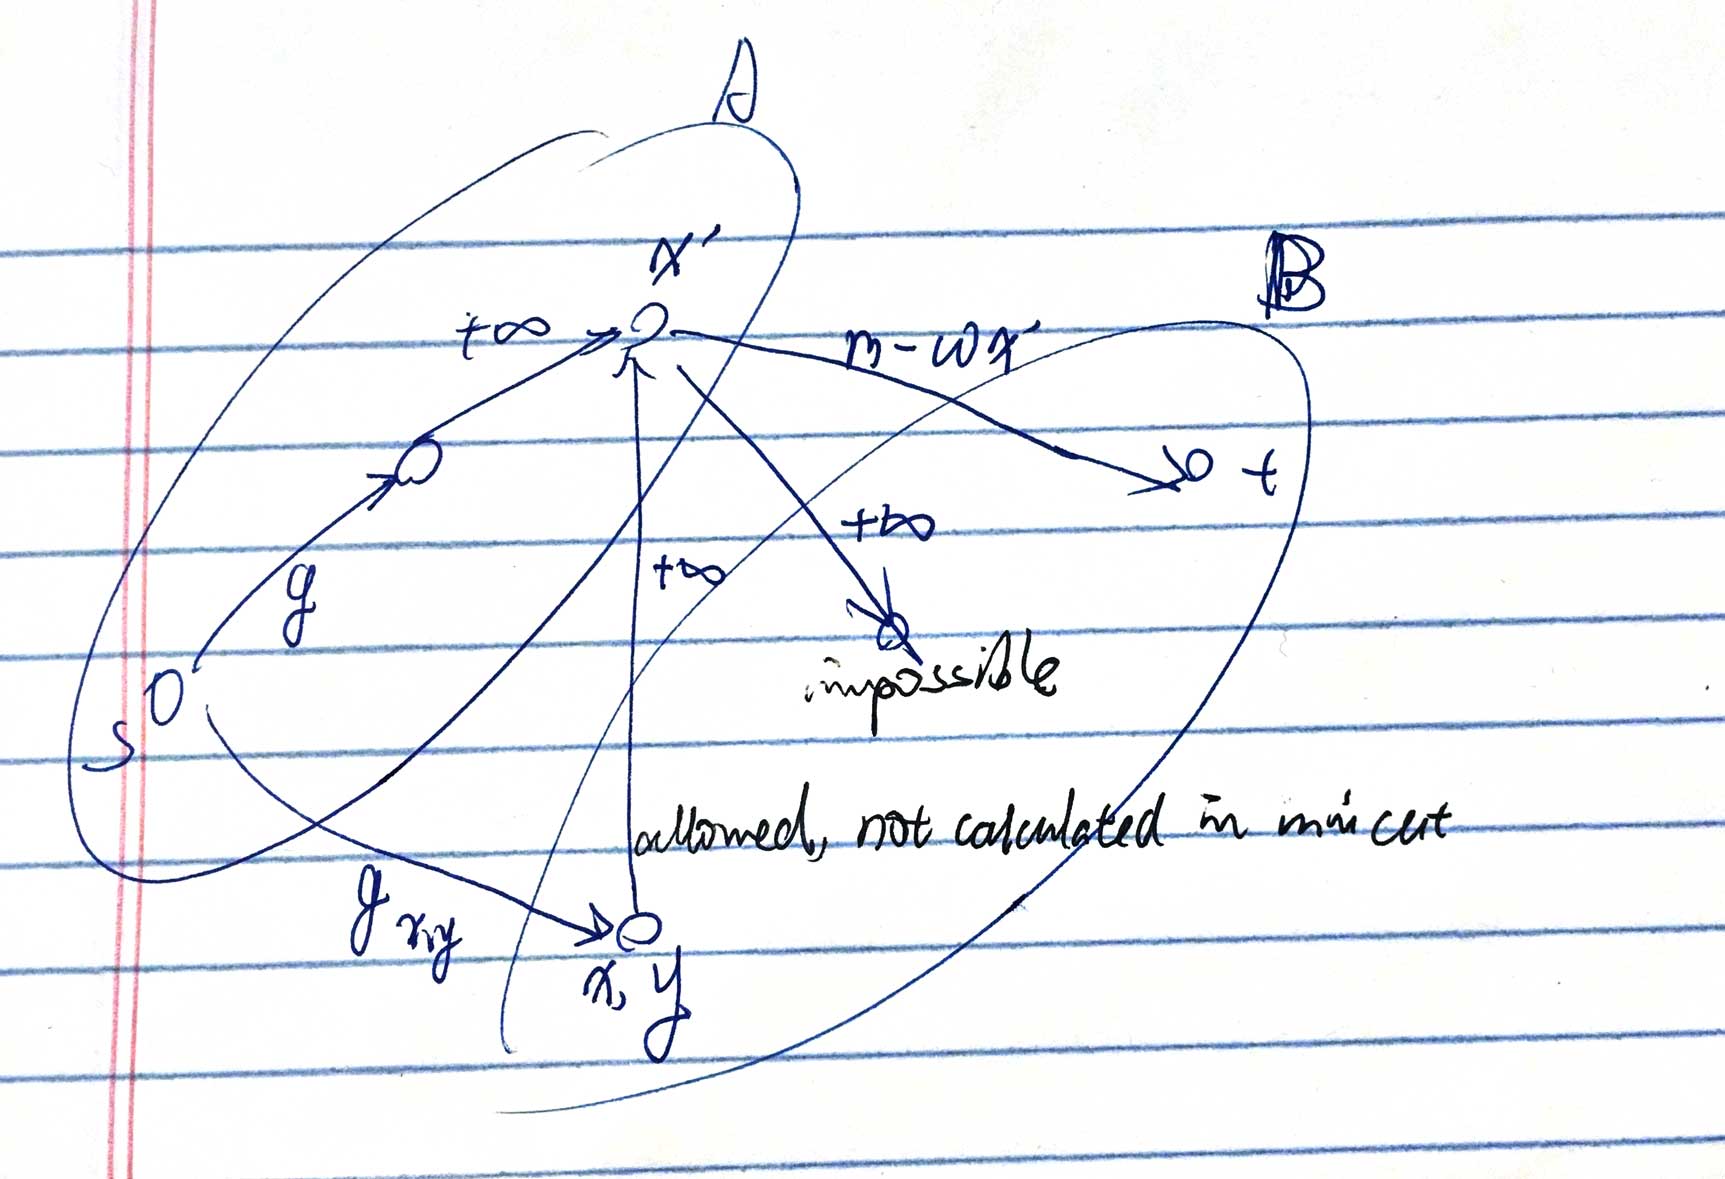 A
x'
B
+∞
m - wx'
t
+∞
+∞
g
impossible
s
allowed, not calculated in min cut
g x,y
x, y